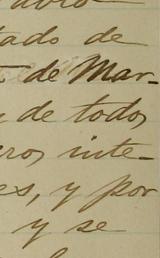 tado de
de Mar-
de todos
ros inte-
es, y por
y se